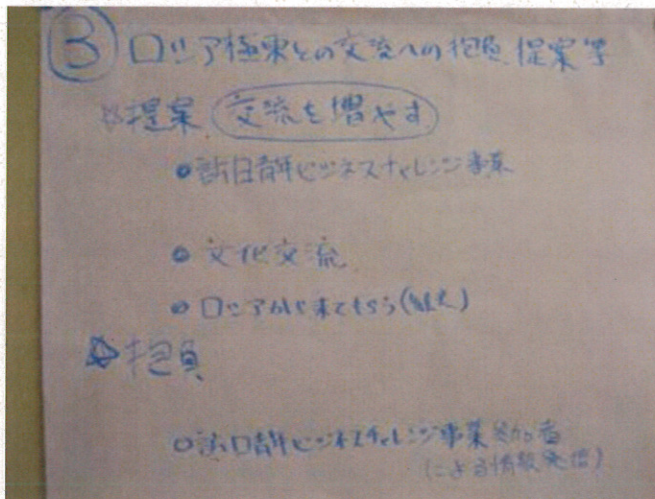 ③ ロシア極東との交流への抱負、提案等
☆提案 交流を増やす
○訪日青年ビジネスチャレンジ事業
○文化交流
○ロシアから来てもらう
☆抱負
○訪ロ青年ビジネスチャレンジ事業参加者
(による情報発信)